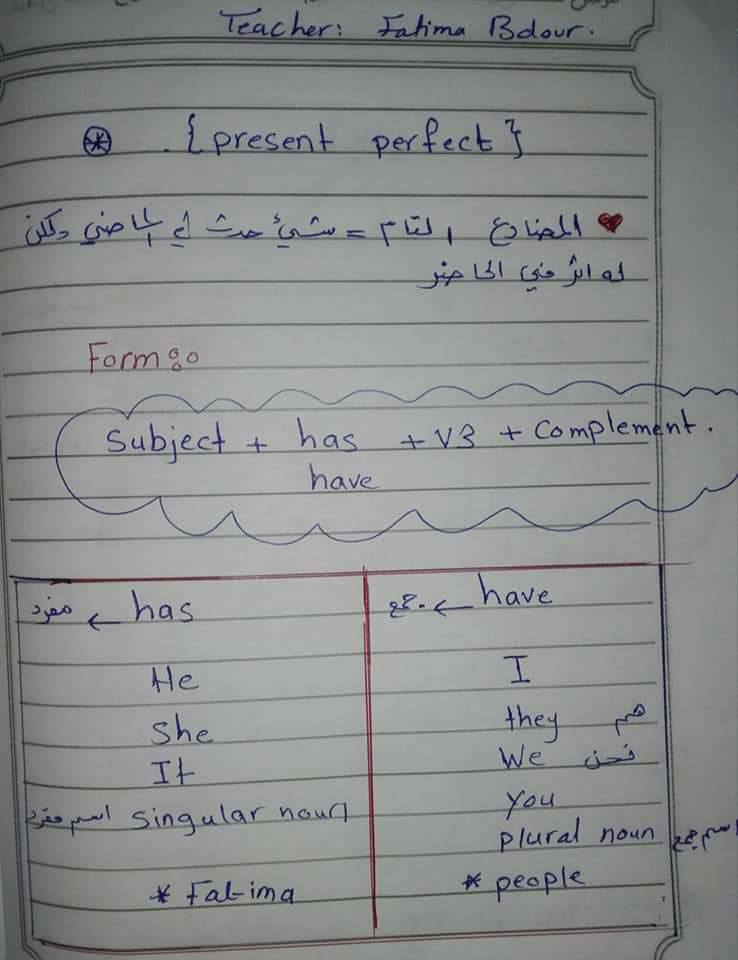 Teacher: Fatima Bdour.
{present perfect}
المضارع التام = شيئ حدث في الماضي ولكن
له اثر في الحاضر
Form:
Subject + has + V3 + Complement.
have
مفرد ← has
جمع ← have
He
I
She
they هم
It
We نحن
You
اسم مفرد singular noun
plural noun اسم جمع
* Fatima
* people